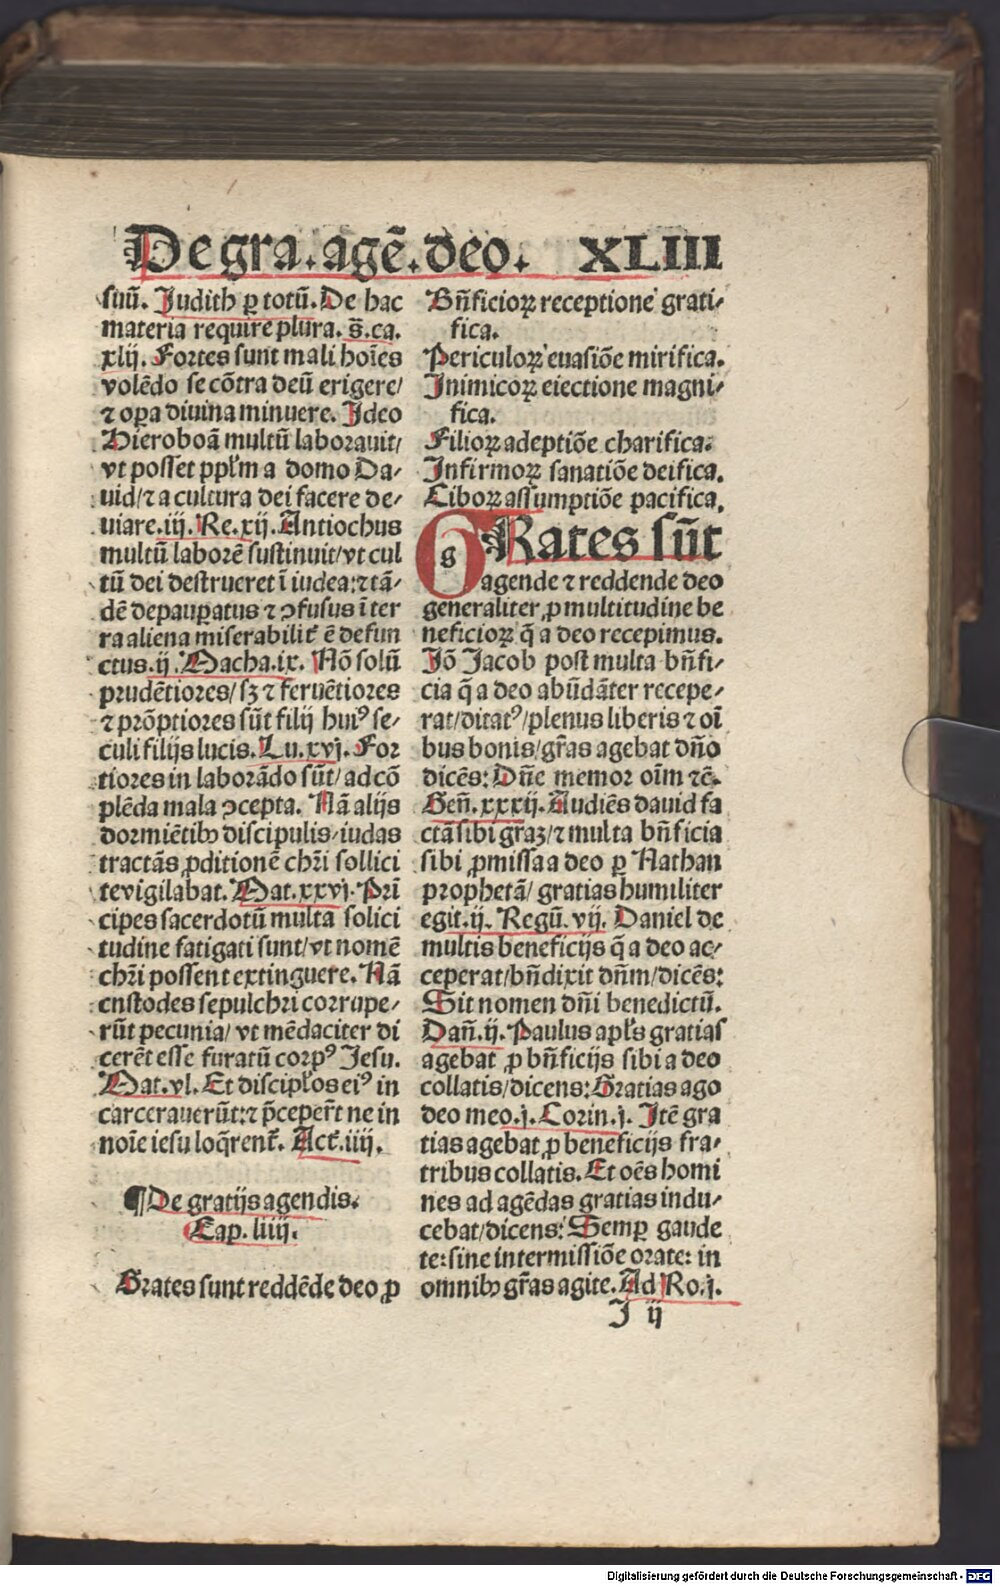 De gra. agē. deo. XLIII
suū. Judith ꝑ totū. De hac
materia require plura. s̄. ca.
xlij. Fortes sunt mali hoīes
volēdo se cōtra deū erigere/
⁊ oꝑa diuina minuere. Ideo
Hieroboā multū laborauit/
vt posset ppl̄m a domo Da-
uid/⁊ a cultura dei facere de-
uiare. iij. Re. xij. Antiochus
multū laborē sustinuit/vt cul
tū dei destrueret ī iudea: ⁊ tā-
dē depauꝑatus ⁊ ꝯfusus ī ter
ra aliena miserabilit̄ ē defun
ctus. ij. Macha. ix. Nō solū
prudētiores/ sꝫ ⁊ feruētiores
⁊ prōptiores sūt filij huiꝰ se-
culi filijs lucis. Lu. xvj. For
tiores in laborādo sūt/ ad cō
plēda mala ꝯcepta. Nā alijs
dormiētibꝰ discipulis/iudas
tractās ꝓditionē chr̄i sollici
te vigilabat. Mat. xxvj. Prī
cipes sacerdotū multa solici
tudine fatigati sunt/ vt nomē
chr̄i possent extinguere. Nā
cnstodes sepulchri corrupe-
rūt pecunia/ vt mēdaciter di
cerēt esse furatū corpꝰ Jesu.
Mat. vl. Et discipl̄os eiꝰ in
carcerauerūt: ⁊ p̄ceper̄t ne in
noīe iesu loq̄rent̄. Act̄. iiij.
¶ De gratijs agendis.
Cap. liiij.
Grates sunt reddēde deo ꝓ
Bn̄ficioꝝ receptione grati-
fica.
Periculoꝝ euasiōe mirifica.
Inimicoꝝ eiectione magni-
fica.
Filioꝝ adeptiōe charifica.
Infirmoꝝ sanatiōe deifica.
Ciboꝝ assumptiōe pacifica.
GRates sūt
agende ⁊ reddende deo
generaliter ꝓ multitudine be
neficioꝝ q̄ a deo recepimus.
Iō Jacob post multa bn̄fi-
cia q̄ a deo abūdāter recepe-
rat/ditatꝰ/plenus liberis ⁊ oī
bus bonis/gr̄as agebat dn̄o
dicēs: Dn̄e memor oīm ⁊c̄.
Gen̄. xxxij. Audiēs dauid fa
ctā sibi graꝫ/⁊ multa bn̄ficia
sibi ꝓmissa a deo ꝑ Nathan
prophetā/ gratias humiliter
egit. ij. Regū. vij. Daniel de
multis beneficijs q̄ a deo ac-
ceperat/bn̄dixit dn̄m/dicēs:
Sit nomen dn̄i benedictū.
Dan̄. ij. Paulus apl̄s gratias
agebat ꝓ bn̄ficijs sibi a deo
collatis/dicens: Gratias ago
deo meo. j. Corin. j. Itē gra
tias agebat ꝓ beneficijs fra-
tribus collatis. Et oēs homi
nes ad agēdas gratias indu-
cebat/dicens: Semꝑ gaude
te: sine intermissiōe orate: in
omnibꝰ gr̄as agite. Ad Ro. j.
I ij
Digitalisierung gefördert durch die Deutsche Forschungsgemeinschaft - DFG